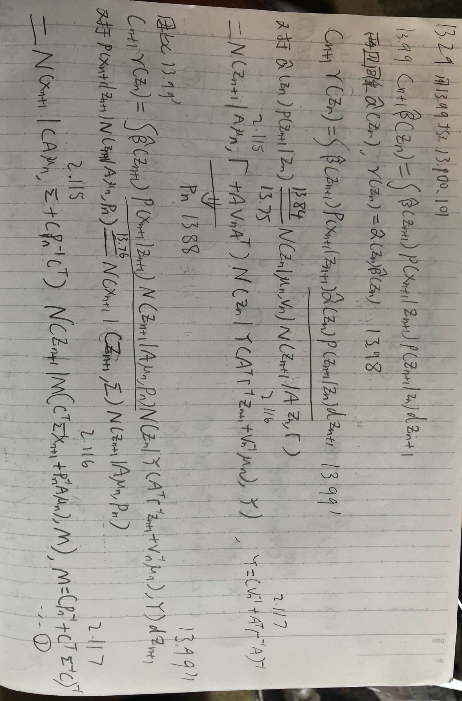 13.29 用13.99 及 13.100, 101
13.99 C_{n+1} β̂(Z_n) = ∫ β̂(Z_{n+1}) P(X_{n+1}|Z_{n+1}) P(Z_{n+1}|Z_n) dZ_{n+1}
两边同乘 α̂(Z_n), γ(Z_n) = α̂(Z_n)β̂(Z_n) 13.98
C_{n+1} γ(Z_n) = ∫ β̂(Z_{n+1}) P(X_{n+1}|Z_{n+1}) α̂(Z_n) P(Z_{n+1}|Z_n) dZ_{n+1} 13.99'
对于 α̂(Z_n) P(Z_{n+1}|Z_n) = N(Z_n|μ_n, V_n) N(Z_{n+1}|AZ_n, Γ) 13.84 13.75
= N(Z_{n+1}|Aμ_n, Γ + AV_nA^T) N(Z_n|Υ(A^TΓ^{-1}Z_{n+1} + V_n^{-1}μ_n), Υ), Υ = (V_n^{-1} + A^TΓ^{-1}A)^{-1} 2.115 2.116 2.117
⇓ P_n 13.88
13.99'
C_{n+1} γ(Z_n) = ∫ β̂(Z_{n+1}) P(X_{n+1}|Z_{n+1}) N(Z_{n+1}|Aμ_n, P_n) N(Z_n|Υ(A^TΓ^{-1}Z_{n+1} + V_n^{-1}μ_n), Υ) dZ_{n+1} 13.99''
对于 P(X_{n+1}|Z_{n+1}) N(Z_{n+1}|Aμ_n, P_n) = N(X_{n+1}|CZ_{n+1}, Σ) N(Z_{n+1}|Aμ_n, P_n) 13.76
= N(X_{n+1}|CAμ_n, Σ + CP_nC^T) N(Z_{n+1}|M(C^TΣ^{-1}X_{n+1} + P_n^{-1}Aμ_n), M), M = (P_n^{-1} + C^TΣ^{-1}C)^{-1} 2.115 2.116 2.117 ... ①